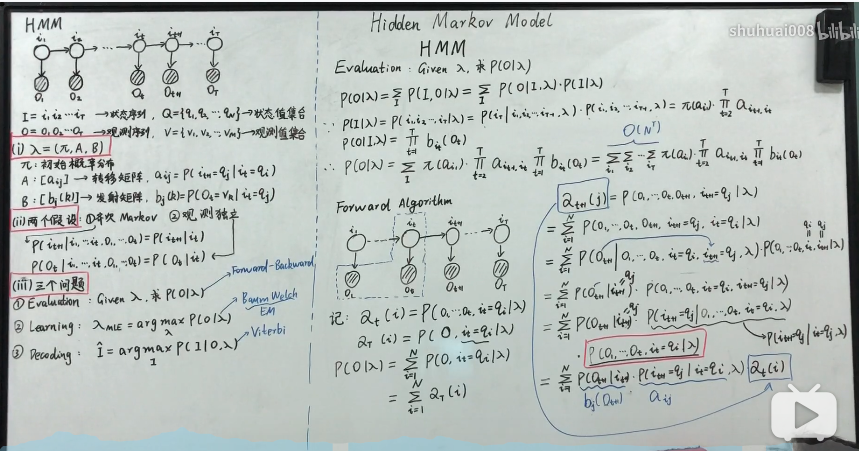 HMM
i₁ i₂ ... iₜ iₜ₊₁ ... i_T
O₁ O₂ Oₜ Oₜ₊₁ O_T
I = i₁, i₂ ... i_T → 状态序列, Q = {q₁, q₂ ... q_N} → 状态值集合
O = O₁, O₂ ... O_T → 观测序列, V = {v₁, v₂ ... v_M} → 观测值集合
(i) λ = (π, A, B)
π: 初始概率分布
A: [aᵢⱼ] → 转移矩阵, aᵢⱼ = P(iₜ₊₁=qⱼ | iₜ=qᵢ)
B: [bⱼ(k)] → 发射矩阵, bⱼ(k) = P(Oₜ=v_k | iₜ=qⱼ)
(ii) 两个假设: ① 齐次 Markov ② 观测独立
P(iₜ₊₁ | i₁, ... iₜ, O₁, ... Oₜ) = P(iₜ₊₁ | iₜ)
P(Oₜ | iₜ, ... i₁, O₁, ... Oₜ₋₁) = P(Oₜ | iₜ)
(iii) 三个问题
Forward-Backward
① Evaluation: Given λ, 求 P(O|λ)
Baum Welch
EM
② Learning: λ_MLE = arg max_λ P(O|λ)
Viterbi
③ Decoding: Î = arg max_I P(I|O,λ)
Hidden Markov Model
HMM
shuhuai008 bilibili
Evaluation: Given λ, 求 P(O|λ)
P(O|λ) = Σ_I P(I,O|λ) = Σ_I P(O|I,λ)·P(I|λ)
∵ P(I|λ) = P(i₁,i₂,...i_T|λ) = P(i_T | i₁,i₂,...i_T₋₁,λ)·P(i₁,i₂,...i_T₋₁,λ) = π(a_i₁)·∏_{t=2}^T a_{iₜ₋₁,iₜ}
P(O|I,λ) = ∏_{t=1}^T b_{iₜ}(Oₜ)
O(N^T)
∴ P(O|λ) = Σ_I π(a_i₁)·∏_{t=2}^T a_{iₜ₋₁,iₜ} ∏_{t=1}^T b_{iₜ}(Oₜ) = Σ_{i₁} Σ_{i₂} ... Σ_{i_T} π(a_i₁)·∏_{t=2}^T a_{iₜ₋₁,iₜ} ∏_{t=1}^T b_{iₜ}(Oₜ)
Forward Algorithm
i₁ iₜ iₜ₊₁ i_T
O₁ Oₜ Oₜ₊₁ O_T
记: αₜ(i) = P(O₁,...Oₜ, iₜ=qᵢ|λ)
α_T(i) = P(O, i_T=qᵢ|λ)
P(O|λ) = Σ_{i=1}^N P(O, i_T=qᵢ|λ)
= Σ_{i=1}^N α_T(i)
αₜ₊₁(j) = P(O₁,...Oₜ,Oₜ₊₁, iₜ₊₁=qⱼ|λ)
= Σ_{i=1}^N P(O₁,...Oₜ,Oₜ₊₁, iₜ₊₁=qⱼ, iₜ=qᵢ|λ)
qᵢ qⱼ
= Σ_{i=1}^N P(Oₜ₊₁ | O₁,...Oₜ, iₜ=qᵢ, iₜ₊₁=qⱼ, λ)·P(O₁,...Oₜ, iₜ, iₜ₊₁|λ)
= Σ_{i=1}^N P(Oₜ₊₁ | iₜ₊₁=qⱼ)·P(O₁,...Oₜ, iₜ=qᵢ, iₜ₊₁=qⱼ|λ)
= Σ_{i=1}^N P(Oₜ₊₁ | iₜ₊₁=qⱼ)·P(iₜ₊₁=qⱼ | O₁,...Oₜ, iₜ=qᵢ, λ)
→ P(iₜ₊₁=qⱼ | iₜ=qᵢ, λ)
· P(O₁,...Oₜ, iₜ=qᵢ|λ)
= Σ_{i=1}^N P(Oₜ₊₁ | iₜ₊₁)·P(iₜ₊₁=qⱼ | iₜ=qᵢ, λ) αₜ(i)
bⱼ(Oₜ₊₁) aᵢⱼ